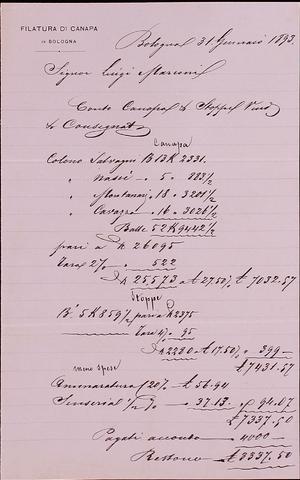 FILATURA DI CANAPA
IN BOLOGNA
Bologna 31 Gennaio 1893.
Signor Luigi Marconi
Conto Canapa & Stoppe
Consegnat
Canapa
Colono Salvagni B 13 K 2331.
" " 5 " 883½
" Montanari " 18 " 3201½
" " 16 " 3026½
Balle 52 K 9442½
pari a 26095
Tara 2% 522
25573 a £ 27.50% £ 7032.57
Stoppe
B 5 K 859½ pari a 2375
Tara 4% 95
2280 a £ 17.50% " 399—
£ 7431.57
meno spese
£ 56.94
37.13 £ 94.07
£ 7337.50
Pagati acconto 4000—
Restano £ 3337.50